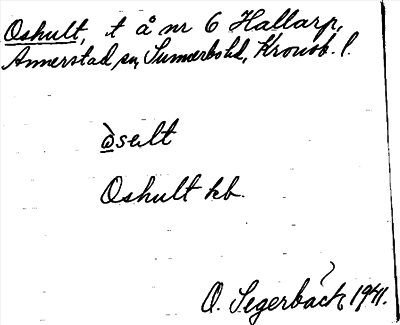 Oshult, t å nr 6 Hallarp,
Annerstad sn, Sunnerbo hd, Kronob. l.
òsult
Oshult kb.
O. Segerbäck 1941.